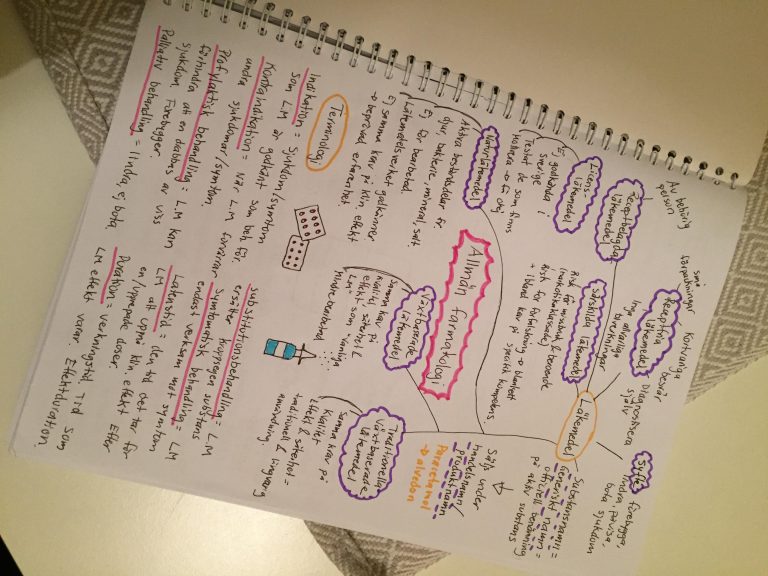 Allmän farmakologi
Läkemedel
Syfte
förebygga,
lindra, påvisa,
bota sjukdom
Receptfria
läkemedel
små
förpackningar
Kortvariga
besvär
Diagnosticera
själv
Inga allvarliga
Receptbelagda
läkemedel
Av behörig
person
Licens-
läkemedel
Ej godkända i
Sverige
Testat de som finns
Särskilda läkemedel
Risk för missbruk & beroende
(narkotikaklassade)
Risk för
Naturläkemedel
Aktiva beståndsdelar fr
djur, bakterie, mineral, salt.
Ej för bearbetad.
Läkemedelsverket godkänner
Ej samma krav på klin. effekt
→ beprövad erfarenhet
Växtbaserade
läkemedel
Samma krav på
kvalité, säkerhet &
effekt som vanliga
LM
Traditionella
växtbaserade
läkemedel
Samma krav på
kvalitet
Effekt & säkerhet =
traditionell & långvarig
användning
Substansnamn =
Generiskt namn =
officiell benämning
på aktiv substans
Säljs under
handelsnamn/
produktnamn
Paracetamol
→ alvedon
Terminologi
Indikation = Sjukdom/symtom
som LM är godkänt som beh. för.
Kontraindikation = När LM förvärrar
andra sjukdomar/symtom.
Profylaktisk behandling = LM kan
förhindra att en drabbas av viss
sjukdom. Förebygger.
Palliativ behandling = lindra, ej bota.
Substitutionsbehandling = LM
ersätter kroppsegen substans
Symtomatisk behandling = LM
endast verksam mot symtom
Latenstid = den tid det tar för
LM att uppnå klin. effekt efter
en/upprepade doser.
Duration = verkningstid, Tid som
LM effekt varar. Effektduration.